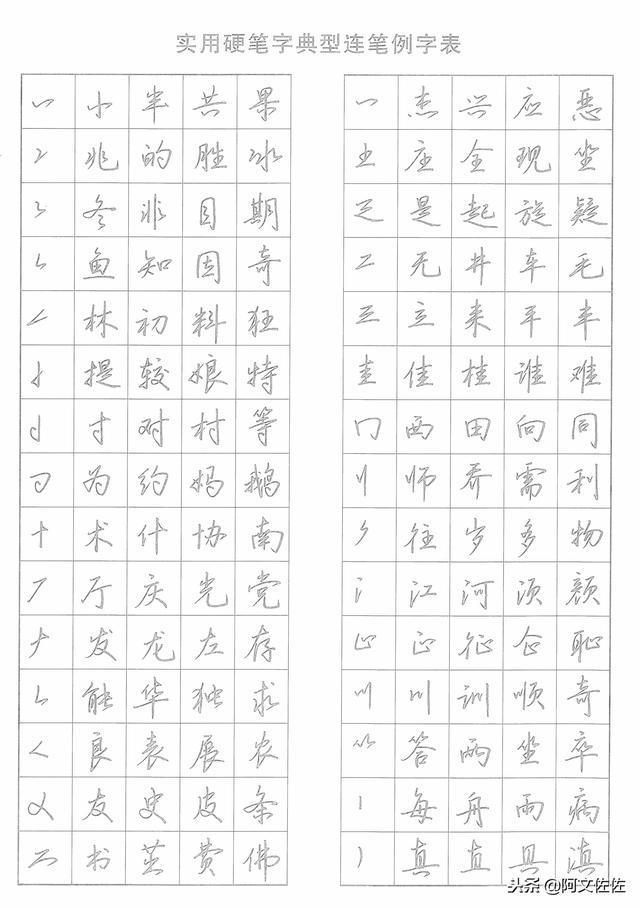 实用硬笔字典型连笔例字表
小 半 共 果
兆 的 胜 冰
冬 非 目 期
鱼 知 固 奇
林 初 料 狂
提 较 娘 特
寸 对 村 等
为 约 妈 鹅
十 术 什 协 南
厅 庆 光 党
发 龙 左 存
能 华 独 求
良 表 展 农
友 史 皮 条
书 费 佛
一 杰 兴 应 恶
土 座 全 现 坐
是 起 旋 疑
二 无 井 车 毛
三 立 来 平 丰
圭 佳 桂 谁 难
冂 西 田 向 同
师 乔 需 利
往 岁 多 物
江 河 须 颜
正 征 企 耻
川 训 顺 奇
答 两 坐 卒
每 舟 雨 病
真 直 具 滇
头条 @阿文佐佐